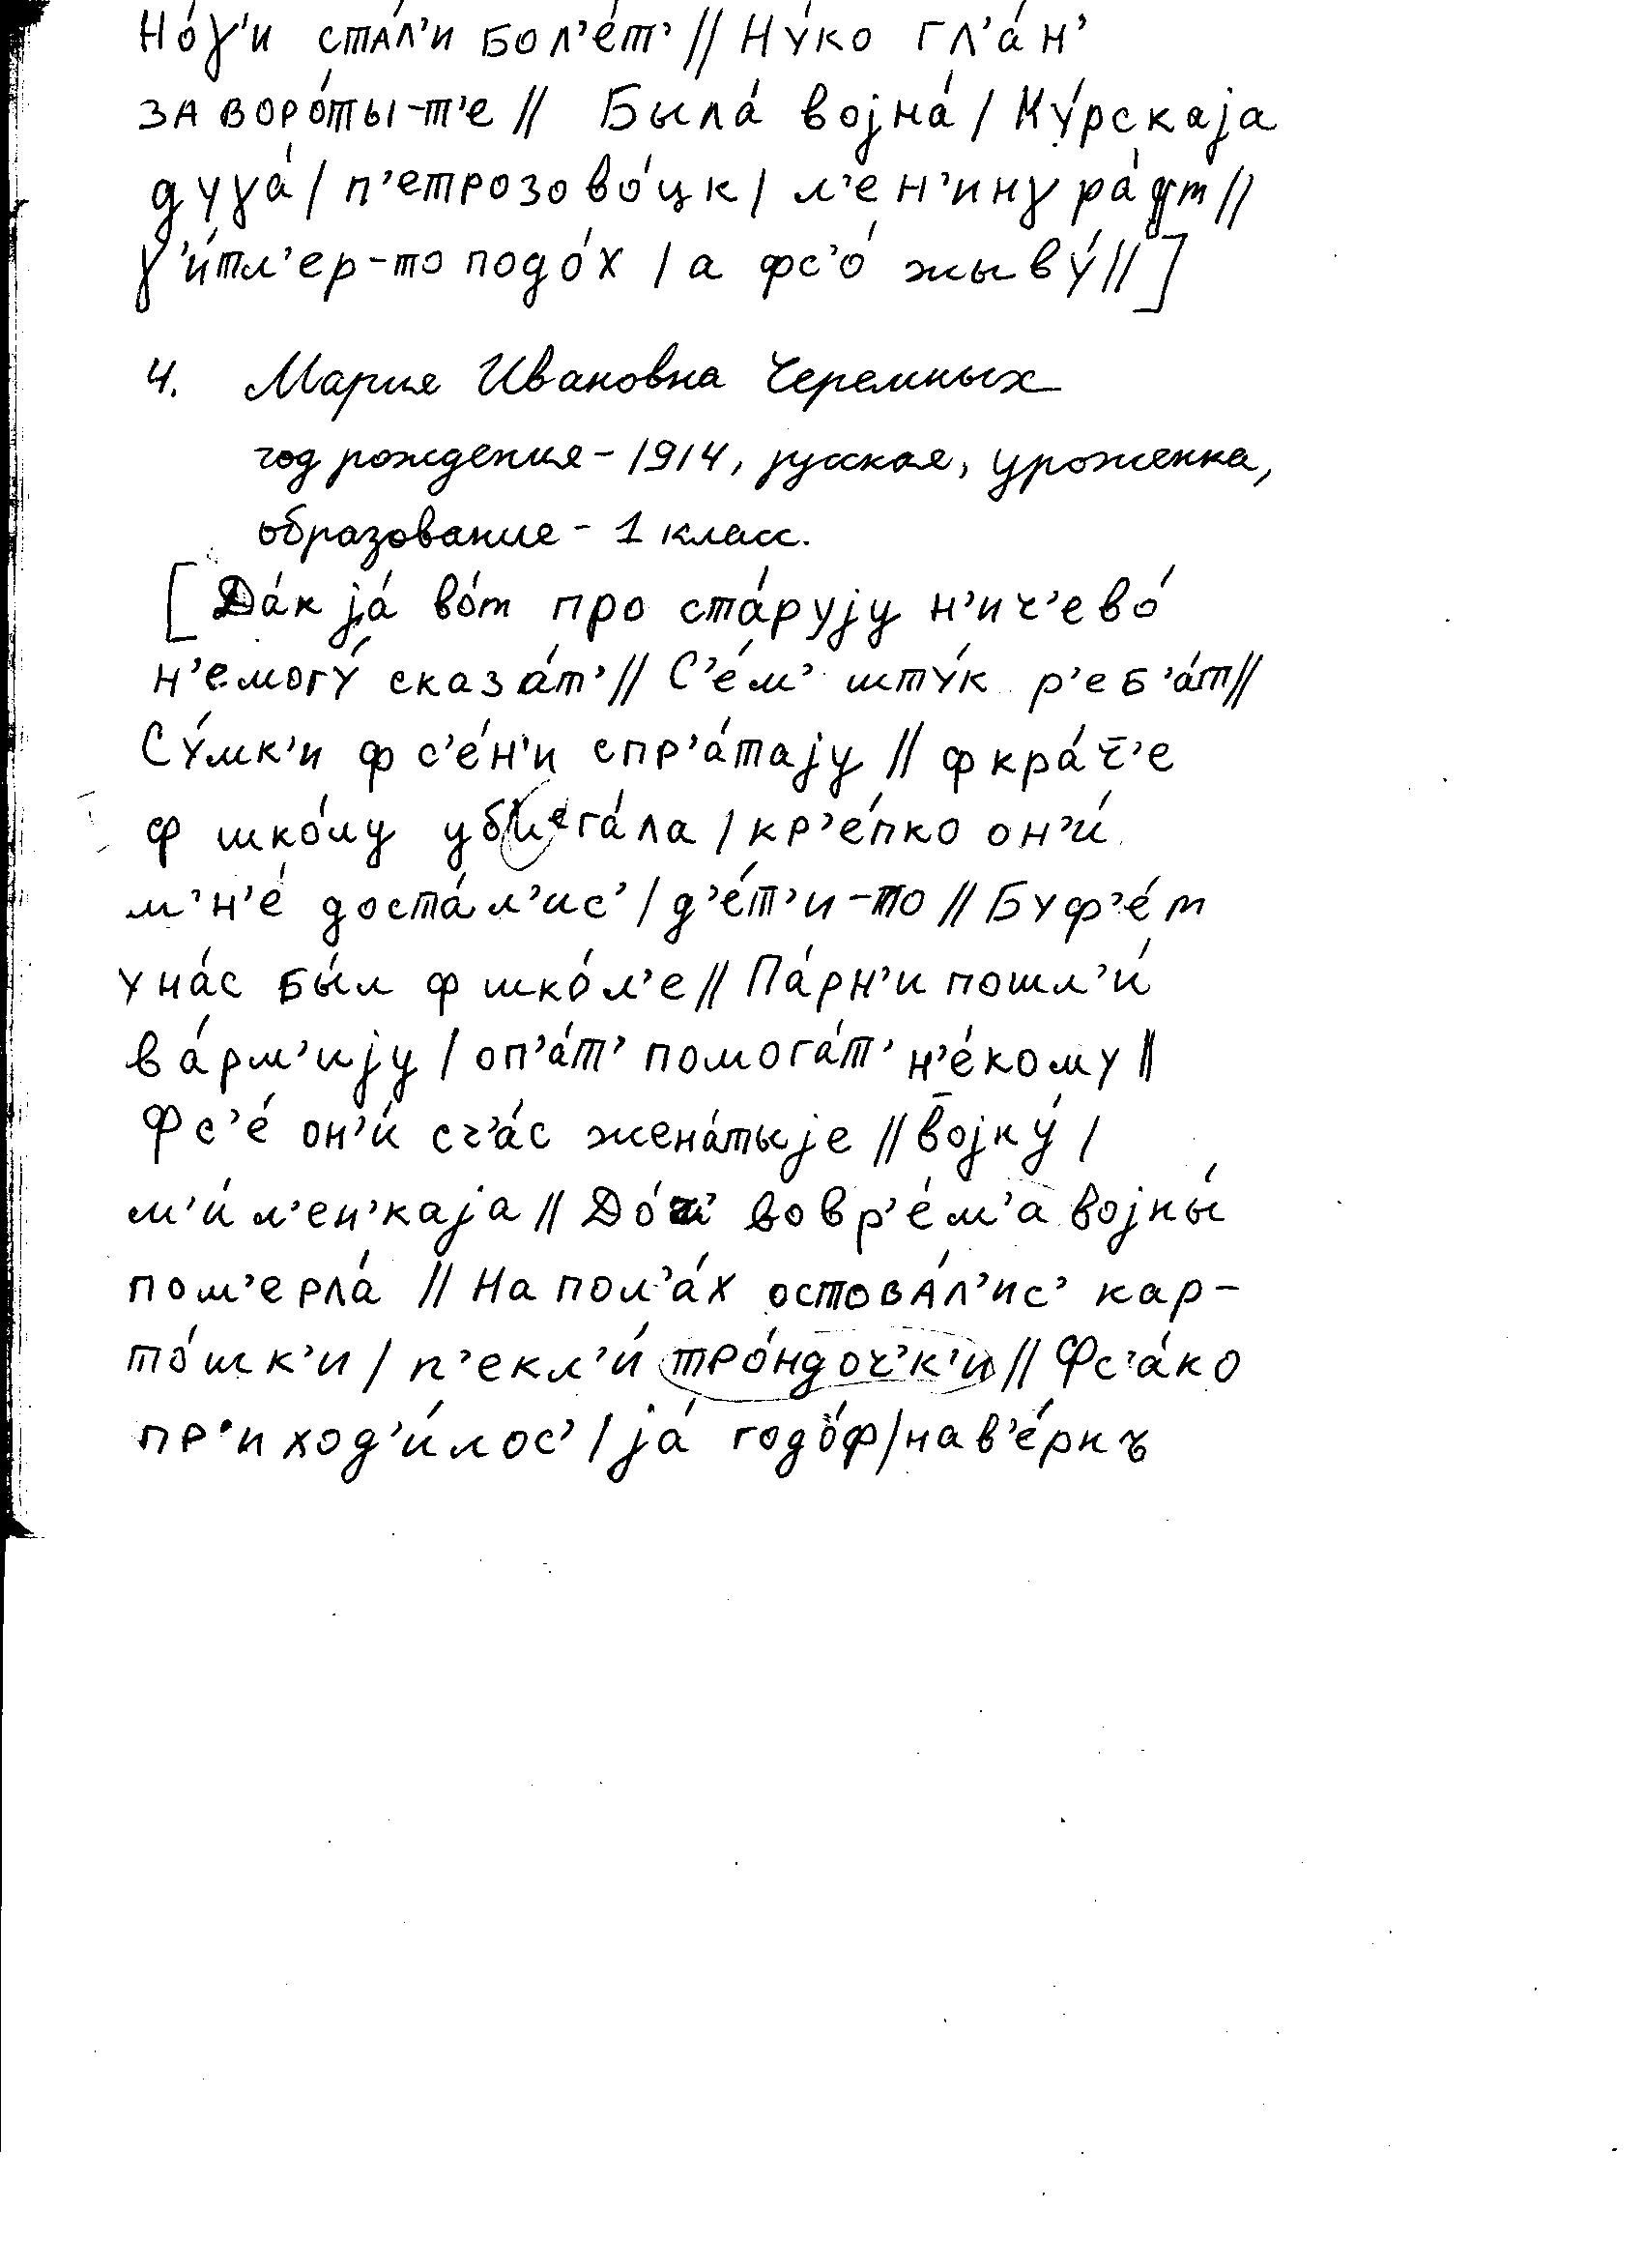 но́ɣ'и стал'и бол'е́т' // Ну́ко гл'а́н'
за воро́ты-т'е // Была́ војна́ / Ку́рскаја
дуɣа́ / п'етрозово́цк / л'ен'инɣра́т //
ɣ'и́тл'ер-то подо́х / а фс'о́ жыву́ // ]
4. Мария Ивановна Черемных
год рождения - 1914, русская, уроженка,
образование - 1 класс.
[ Да́к ја́ во́т про ста́рују н'ич'ево́
н'емогу́ сказа́т' // С'е́м' шту́к р'еб'а́т //
Су́мк'и ф с'е́н'и спр'а́тају // ф кра́т̄'е
ф шко́лу убиега́ла / кр'е́пко он'и́
м'н'е́ доста́л'ис' / д'е́т'и-то // Буф'е́т
у на́с бы́л ф шко́л'е // Па́рн'и пошл'и́
в а́рм'ију / оп'а́т' помога́т' н'е́кому //
Фс'е́ он'и́ сч'а́с жена́тыје // в̄ојну́ /
м'и́л'ен'каја // До́ч' вовр'е́м'а војны́
пом'ерла́ // На пол'а́х остова́л'ис' кар-
то́шк'и / п'екл'и́ тро́ндоч'к'и // Фс'а́ко
пр'иход'и́лос' / ја́ годо́ф / нав'е́рнъ